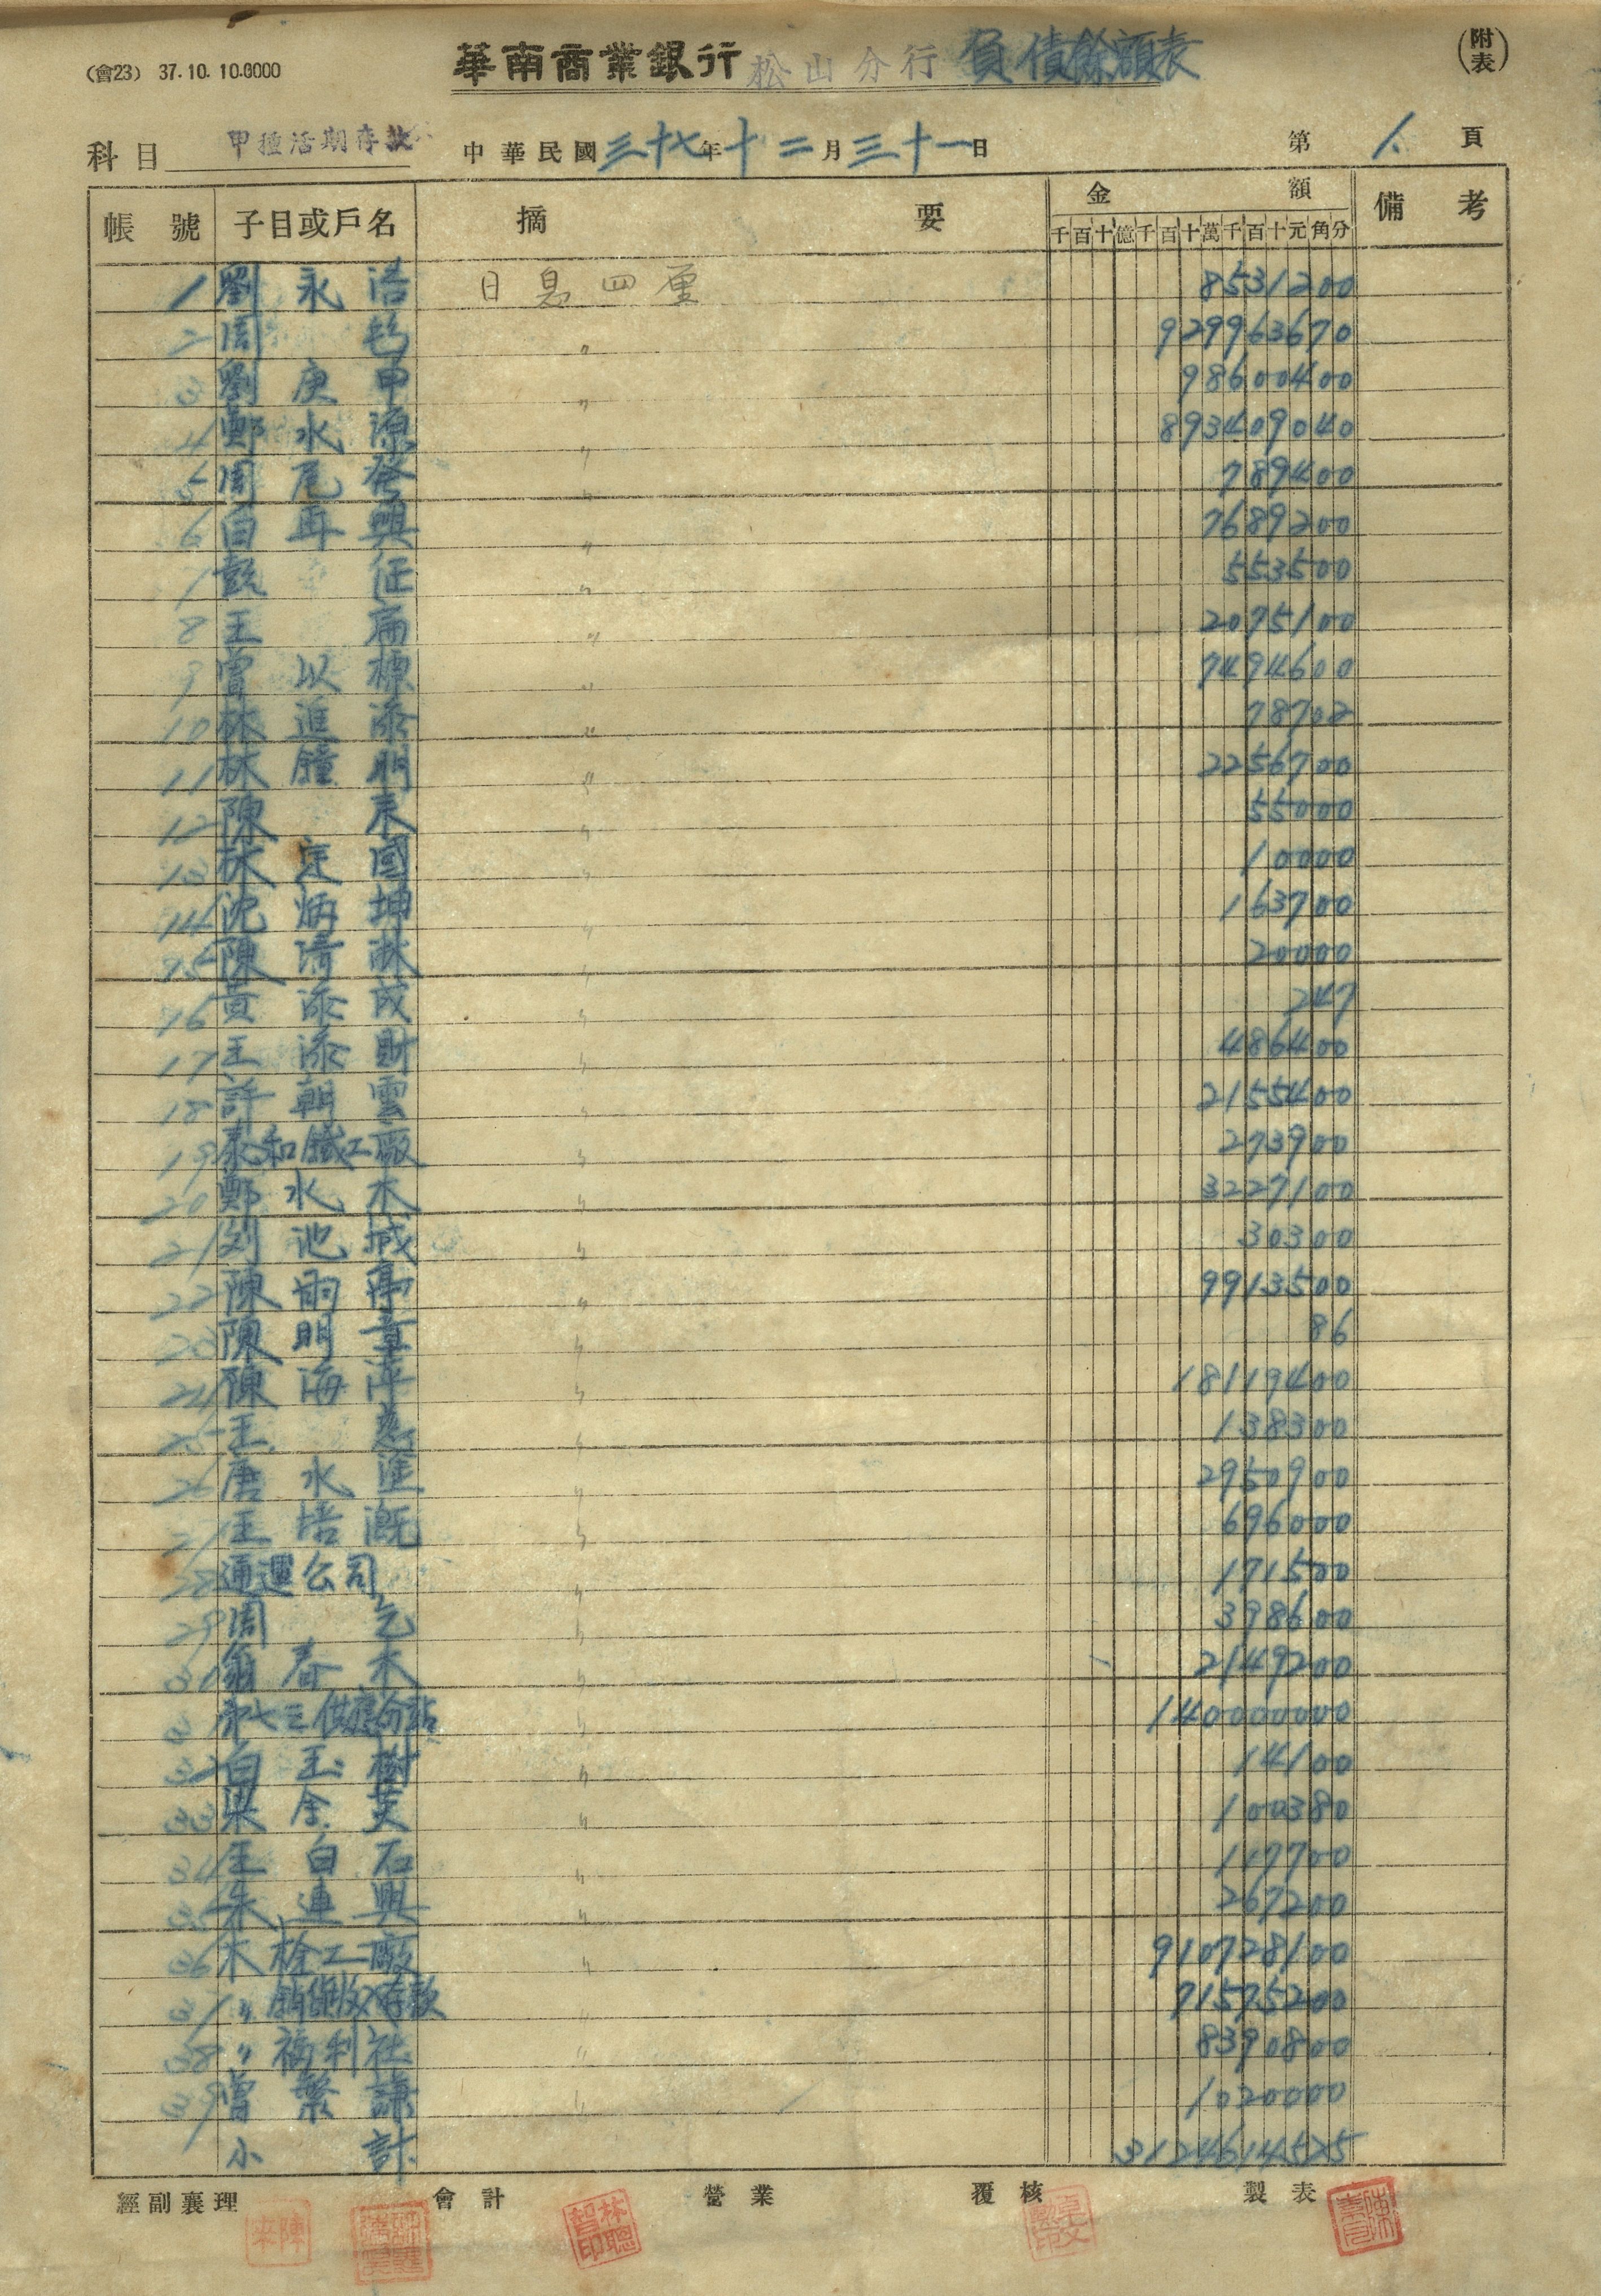 (會23) 37.10.10.0000
華南商業銀行 松山分行 負債餘額表
(附表)
科目 甲種活期存款 中華民國三十七年十二月三十一日 第 1 頁
帳號 子目或戶名 摘要 金額 備考
千百十億千百十萬千百十元角分
1 劉永浩 日息四厘 8531200
2 周 〃 929963670
3 劉庚甲 〃 98600400
4 鄭水源 〃 893409040
5 周尾發 〃 789400
6 白再興 〃 7689200
7 彭征 〃 553500
8 王 〃 2075100
9 曾以標 〃 7494600
10 林進添 〃 78702
11 林鐘明 〃 2256700
12 陳末 〃 55000
13 林定國 〃 10000
14 沈炳坤 〃 163700
15 陳清淋 〃 20000
16 黃添成 〃 247
17 王添財 〃 486400
18 許朝雲 〃 2155400
19 泰和鐵工廠 〃 273900
20 鄭水木 〃 3227100
21 劉池城 〃 30300
22 陳雨亭 〃 9913500
23 陳明章 〃 86
24 陳海萍 〃 18119400
25 王 〃 138300
26 唐水塗 〃 2950900
27 王浩 〃 696000
28 通運公司 〃 171500
29 周乞 〃 398600
31 翁春木 〃 2149200
3 第七三供應分站 〃 140000000
32 白玉樹 〃 14100
33 梁金英 〃 100380
34 王白石 〃 147700
35 朱連興 〃 267200
36 木栓工廠 〃 910728100
37 〃銷貨收入存款 〃 71575200
38 〃福利社 〃 8390800
39 曾繁謙 〃 1020000
小計 3124614525
經副襄理 會計 營業 覆核 製表
陳
林聰智印